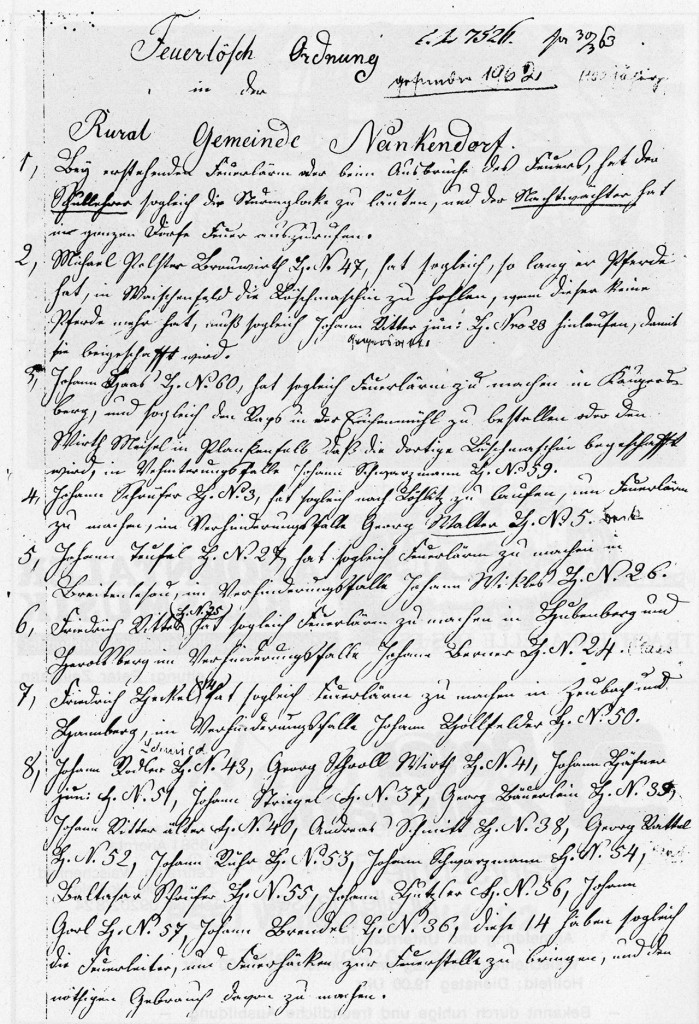 Feuerlösch Ordnung
in der
Rural Gemeinde Nankendorf.
1, Bey erstehenden Feuerlärm oder beim Ausbruche des Feuers, hat der
Schullehrer sogleich die Sturmglocke zu läuten, und der Nachtwächter hat
im ganzen Dorfe Feuer auszurufen.
2, Michael Polster Brauwirth H. N. 47, hat sogleich, so lang er Pferde
hat, in Waischenfeld die Löschmaschin zu hohlen, wenn dieser keine
Pferde mehr hat, muß sogleich Johann Ritter jun: H. Nro 28 hinlaufen, damit
sie beigeschafft wird.
3, Johann Haas H. N. 60, hat sogleich Feuerlärm zu machen in
berg, und sogleich den in der Eichenmühl zu bestellen oder den
Wirth in Plankenfels daß die dortige Löschmaschin beygeschafft
wird, in Verhinterungsfalle Johann Schwarzmann H. N. 59.
4, Johann Schrüfer H. N. 3, hat sogleich nach Löhlitz zu laufen, um Feuerlärm
zu machen, im Verhinderungsfalle Georg Walter H. N. 5.
5, Johann Teufel H. N. 27, hat sogleich Feuerlärm zu machen in
Breitenlesau, im Verhinderungsfalle Johann H. N. 26.
6, Friedrich Ritter H. N. 25 hat sogleich Feuerlärm zu machen in Hubenberg und
Gerolsberg im Verhinderungsfalle Johann Berner H. N. 24. Haas
7, Friedrich Heckel hat sogleich Feuerlärm zu machen in Zeubach und
Hannberg, im Verhinderungsfalle Johann Hollfelder H. N. 50.
8, Johann Rodler H. N. 43, Georg Schroll Wirth H. N. 41, Johann Häfner
jun: H. N. 51, Johann Striegel H. N. 37, Georg Bäuerlein H. N. 39,
Johann Ritter älter H. N. 40, Andreas Schmitt H. N. 38, Georg Rattel
H. N. 52, Johann Rühr H. N. 53, Johann Schwarzmann H. N. 54,
Balthasar Schrüfer H. N. 55, Johann Hutzler H. N. 56, Johann
H. N. 57, Johann Brendel H. N. 36, diese 14 haben sogleich
die Feuerleiter, und Feuerhäcke zur Feuerstelle zu bringen, und den
nöthigen Gebrauch davon zu machen.